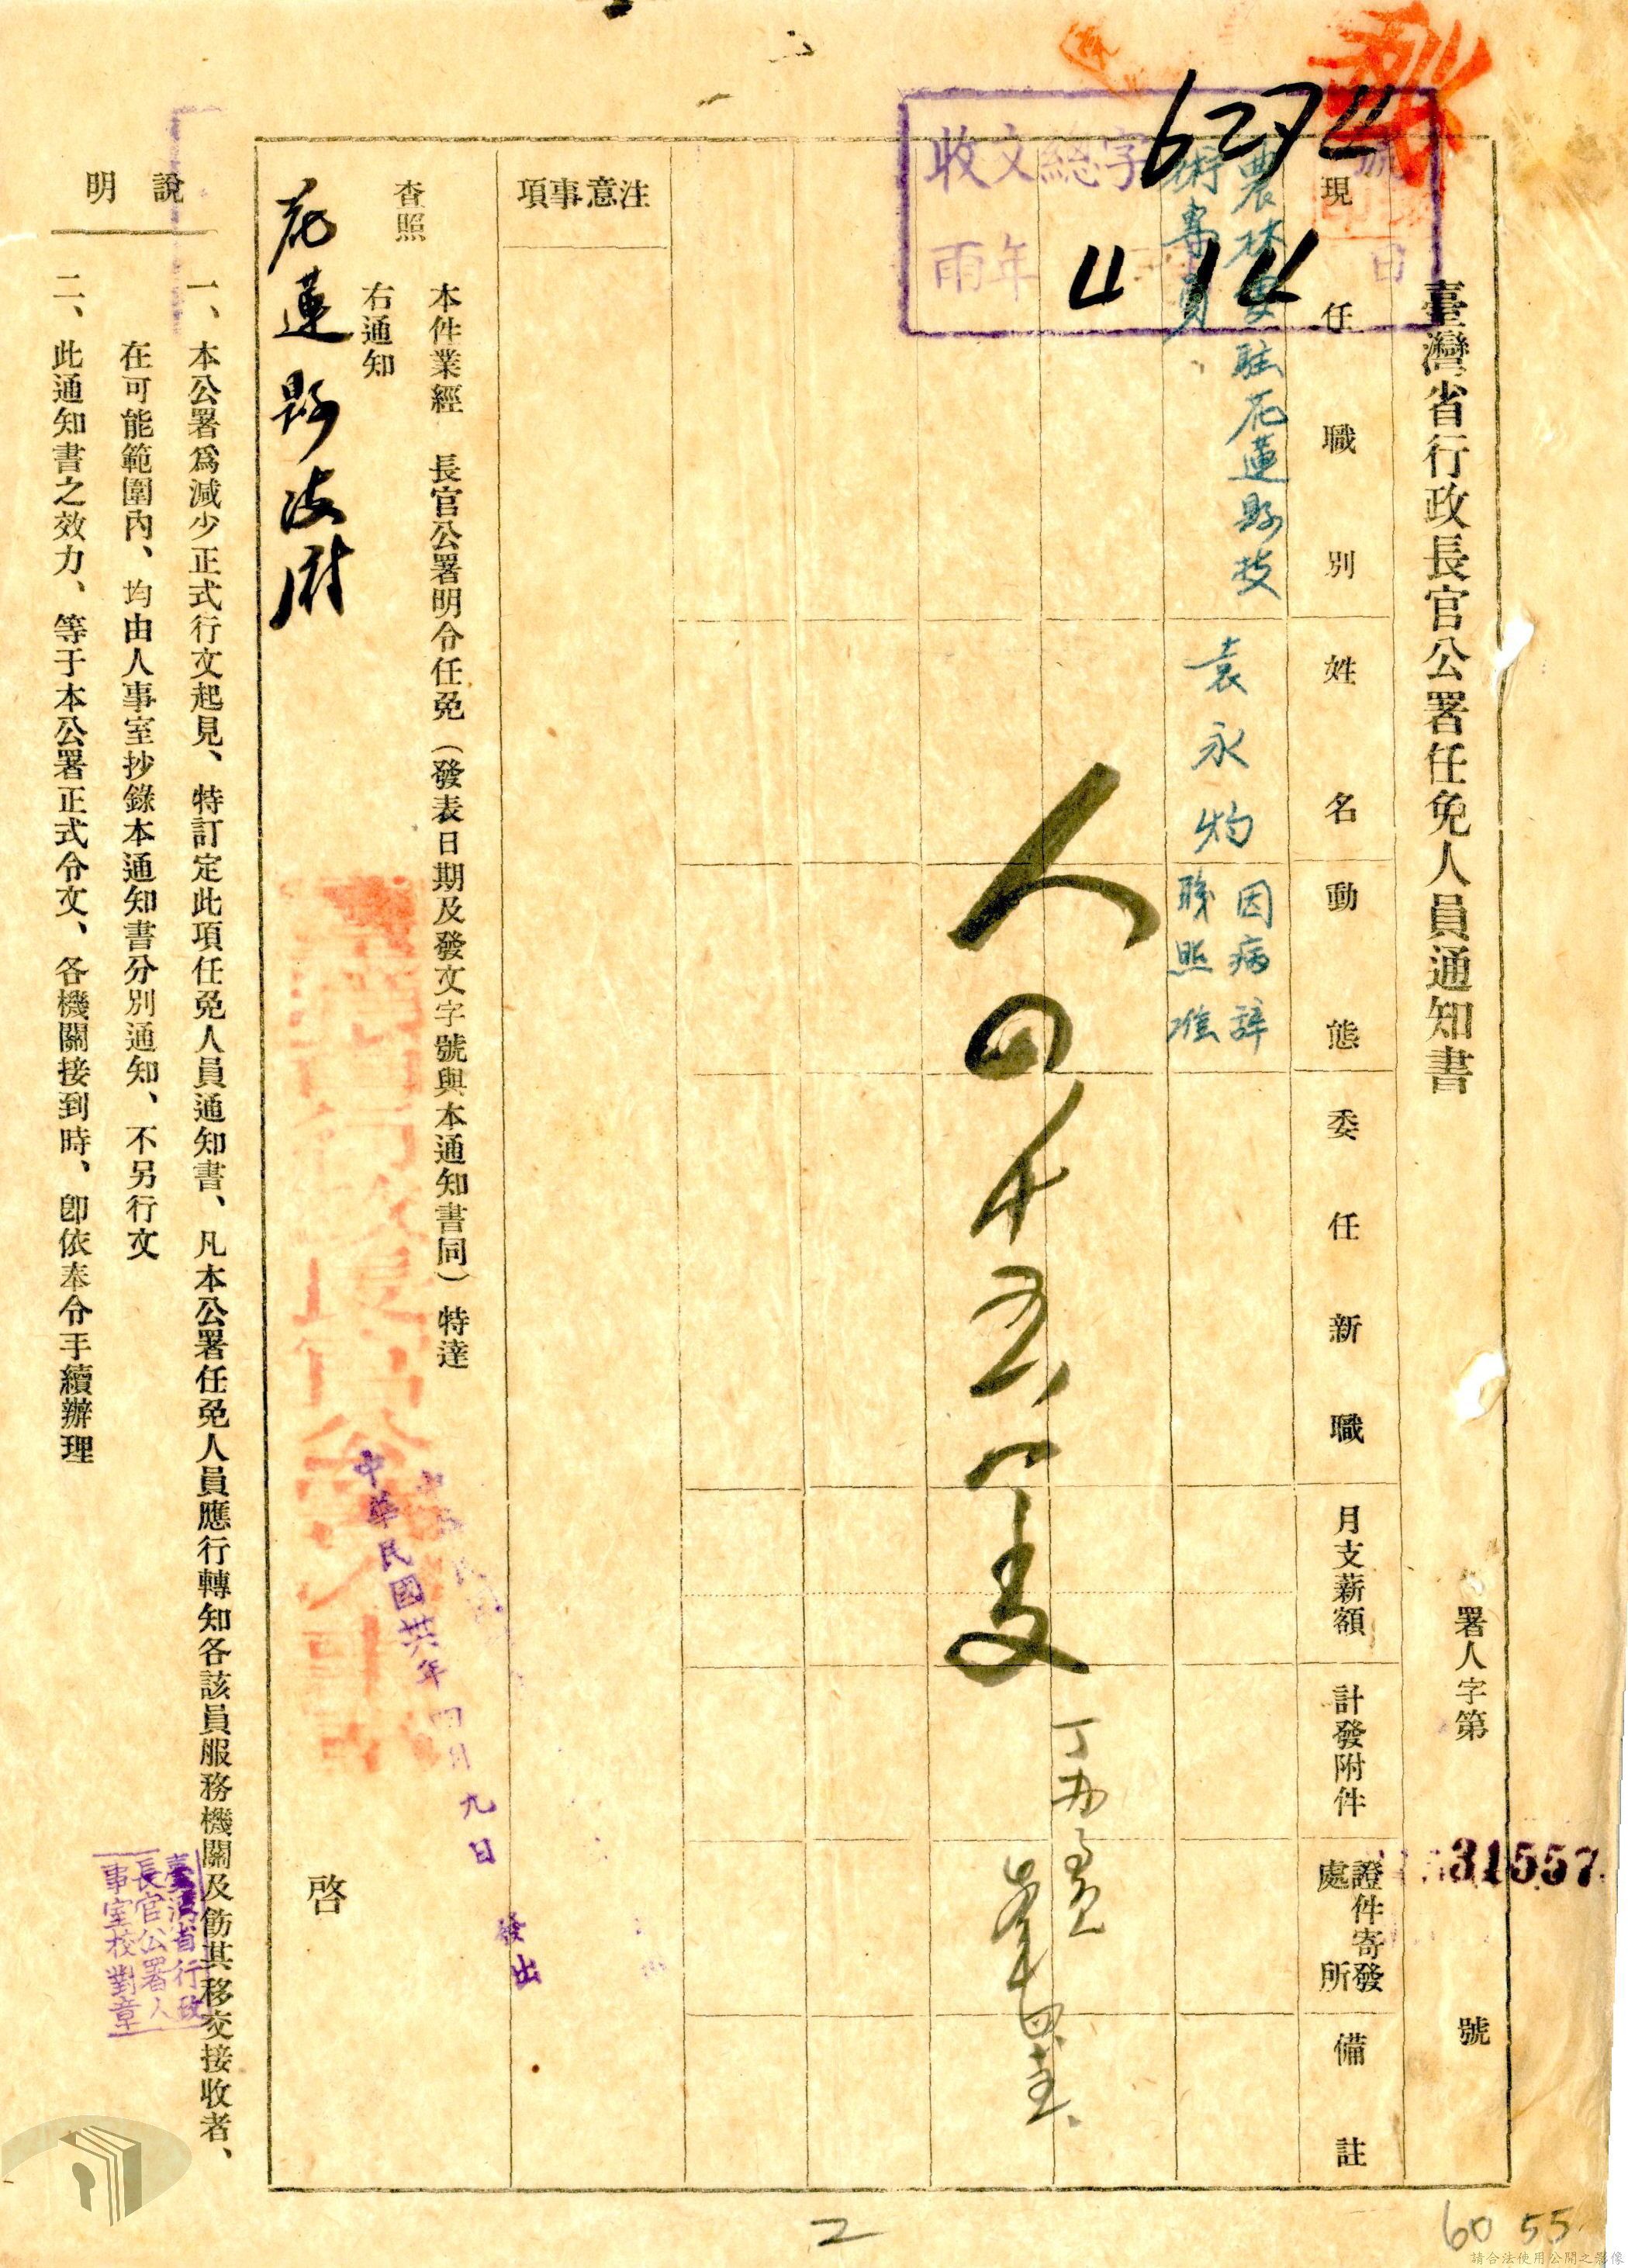 臺灣省行政長官公署任免人員通知書
署人字第
31557
號
收文總字
號
6274
年
日
4 14
現任職別
姓名
動態
委任新職
月支薪額
計發附件
證件寄發處所
備註
農林處駐花蓮縣技
術專員
袁永灼
因病辭
職照准
注意事項
本件業經 長官公署明令任免（發表日期及發文字號與本通知書同）特達
查照
右通知
花蓮縣政府
啓
中華民國卅六年四月九日發出
說明
一、本公署爲減少正式行文起見、特訂定此項任免人員通知書、凡本公署任免人員應行轉知各該員服務機關及飭其移交接收者、
在可能範圍內、均由人事室抄錄本通知書分別通知、不另行文
二、此通知書之效力、等于本公署正式令文、各機關接到時、卽依奉令手續辦理
臺灣省行政
長官公署人
事室校對章
2
60 55
請合法使用公開之影像